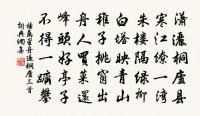 瀟灑桐廬縣
寒江繚一灣
朱樓隔綠柳
白塔映青山
稚子挑窗出
舟人買菜還
峰頭好亭子
不得一躋攀
楊萬里舟過桐廬三首
詞典網集